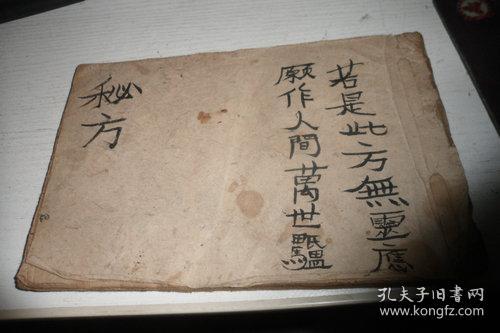 若是此方無靈應
願作人間萬世
秘方
孔夫子旧书网
www.kongfz.com